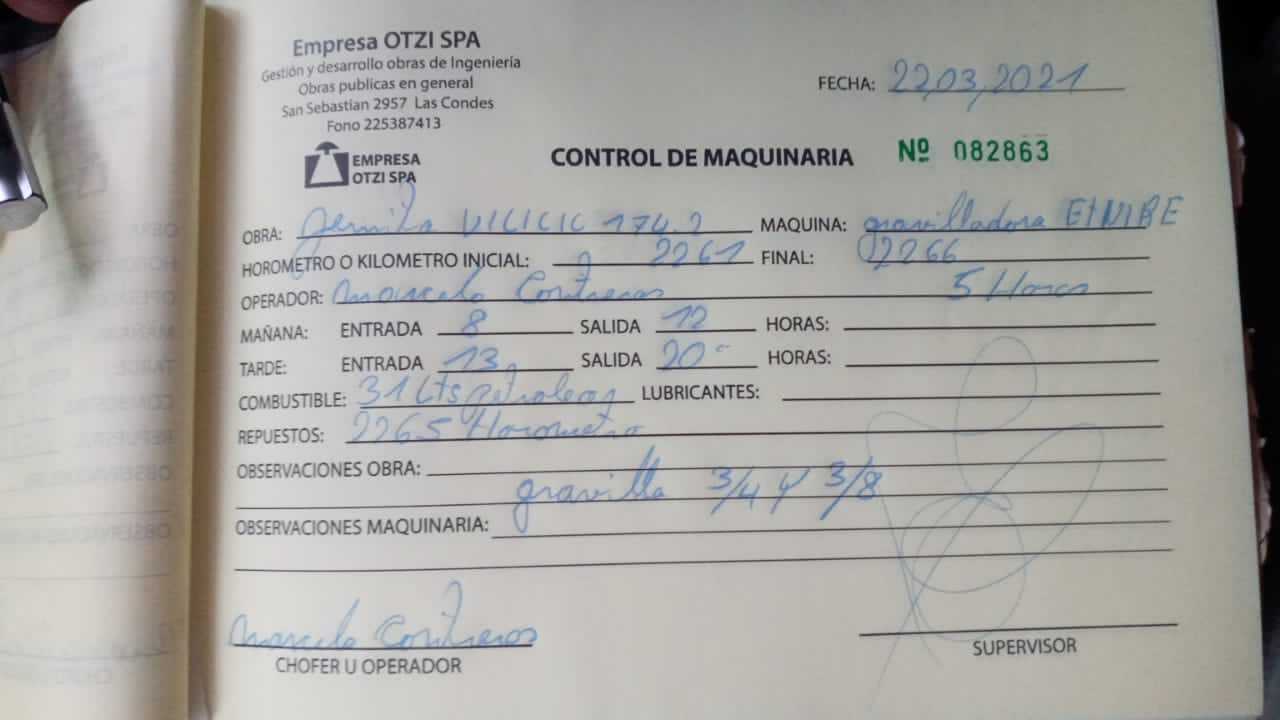 Empresa OTZI SPA
Gestión y desarrollo obras de Ingeniería
Obras publicas en general
San Sebastian 2957 Las Condes
Fono 225387413
FECHA: 22,03,2021
EMPRESA
OTZI SPA
CONTROL DE MAQUINARIA Nº 082863
OBRA: VILICIC 174.2 MAQUINA: gravilladora
HOROMETRO O KILOMETRO INICIAL: 2261 FINAL: 2266
OPERADOR: Marcelo Contreras 5 Horas
MAÑANA: ENTRADA 8 SALIDA 12 HORAS:
TARDE: ENTRADA 13 SALIDA 20 HORAS:
COMBUSTIBLE: 31 Lts petroleo LUBRICANTES:
REPUESTOS: 2265 Horometro
OBSERVACIONES OBRA:
gravilla 3/4 y 3/8
OBSERVACIONES MAQUINARIA:
Marcelo Contreras
CHOFER U OPERADOR
SUPERVISOR